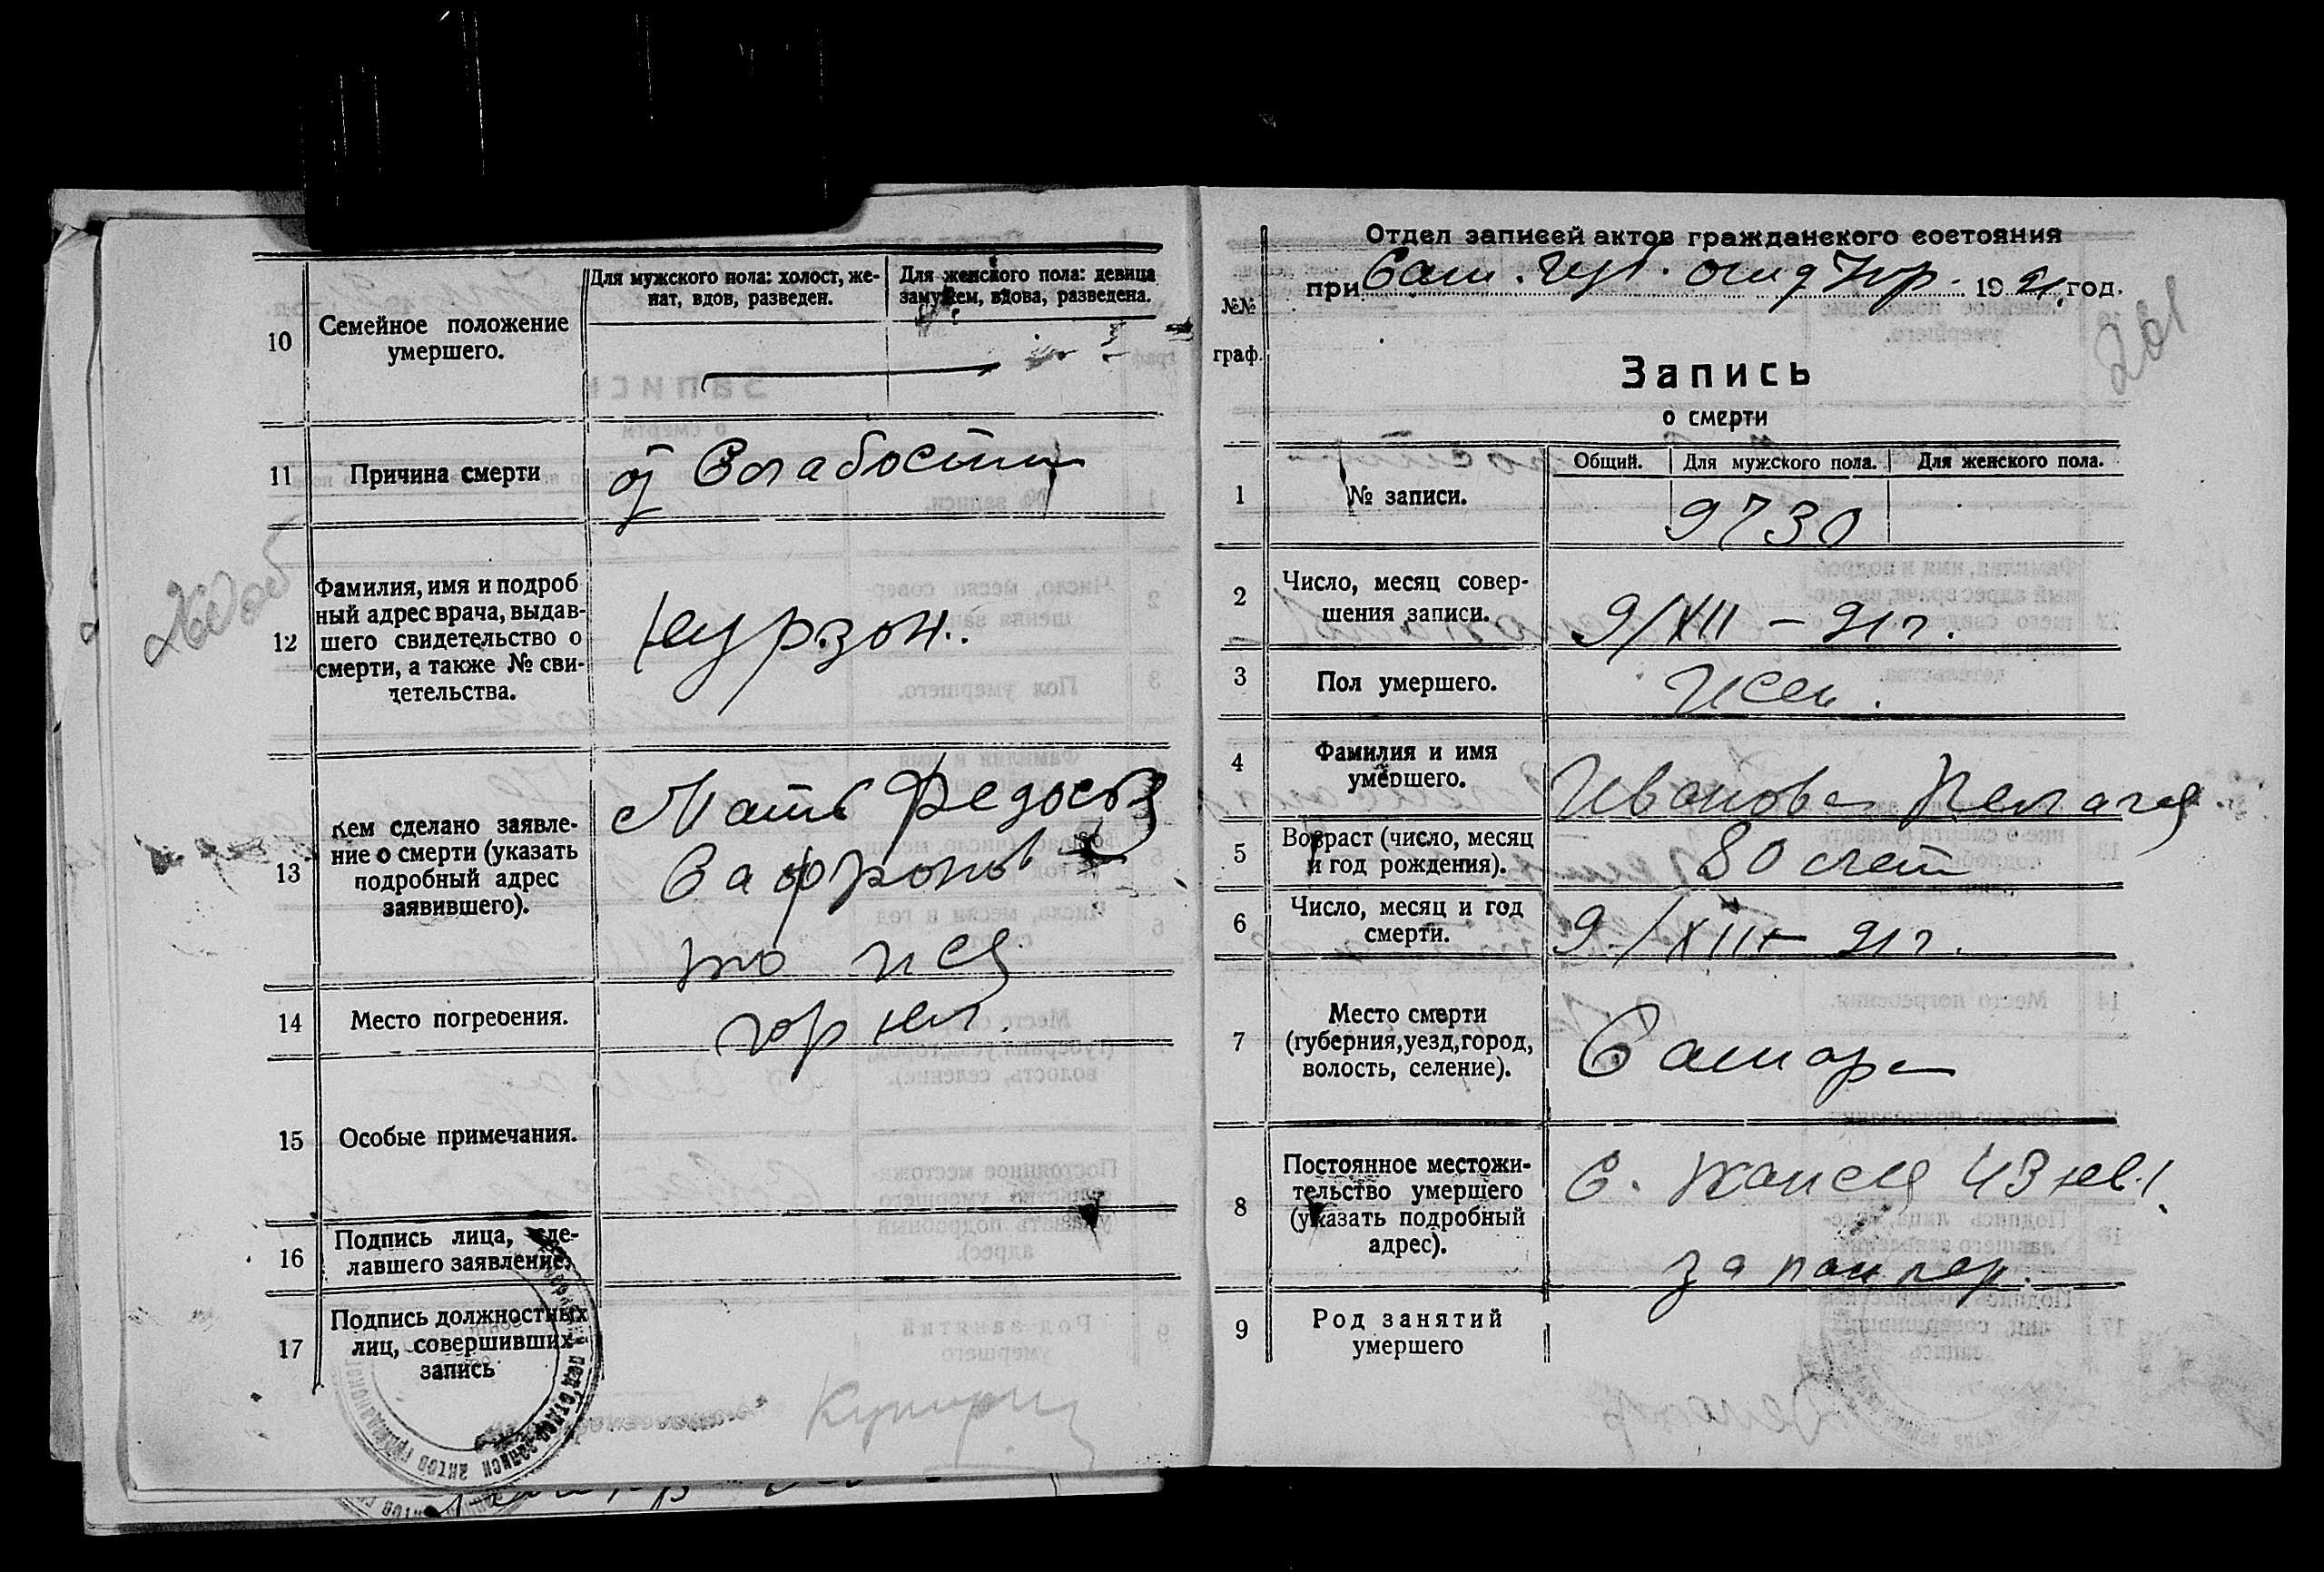 10
Семейное положение
умершего.
Для мужского пола: холост, же-
нат, вдов, разведен.
Для женского пола: девица
замужем, вдова, разведена.
11
Причина смерти
от Слабости
12
Фамилия, имя и подроб
ный адрес врача, выдав-
шего свидетельство о
смерти, а также № сви-
детельства.
Курзон.
13
Кем сделано заявле-
ние о смерти (указать
подробный адрес
заявившего).
Мать Федосья
Сафронов
то же
14
Место погребения.
гор кл.
15
Особые примечания.
16
Подпись лица, сде-
лавшего заявление.
17
Подпись должностных
лиц, совершивших
запись
Отдел записей актов гражданского состояния
при Сам. Губ. отд Упр. 1921 год.
№№
граф.
261
Запись
о смерти
Общий.
Для мужского пола.
Для женского пола.
1
№ записи.
9730
2
Число, месяц совер-
шения записи.
9/XII – 21 г.
3
Пол умершего.
Жен.
4
Фамилия и имя
умершего.
Иванова Пелагея
5
Возраст (число, месяц
и год рождения).
80 лет
6
Число, месяц и год
смерти.
9/XII – 21 г.
7
Место смерти
(губерния, уезд, город,
волость, селение).
Самара
8
Постоянное местожи-
тельство умершего
(указать подробный
адрес).
43 кв. 1
9
Род занятий
умершего